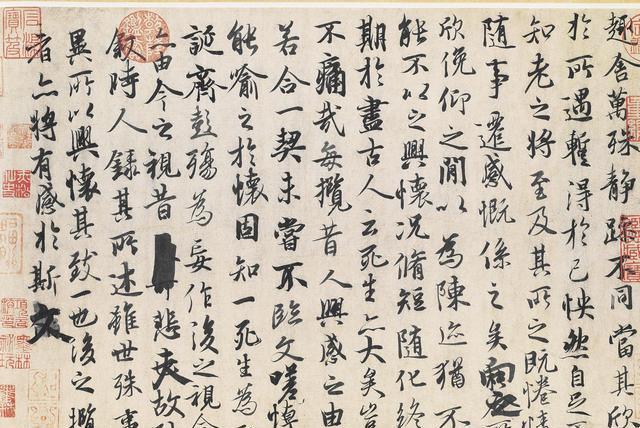 趣舍萬殊靜躁不同當其欣
於所遇蹔得於己怏然自足
知老之將至及其所之既惓情
隨事遷感慨係之矣向之
欣俛仰之閒以為陳迹猶不
能不以之興懷況脩短隨化終
期於盡古人云死生亦大矣豈
不痛哉每攬昔人興感之由
若合一契未嘗不臨文嗟悼
能喻之於懷固知一死生為
誕齊彭殤為妄作後之視今
亦由今之視昔悲夫故
敘時人錄其所述雖世殊事
異所以興懷其致一也後之攬
者亦將有感於斯文